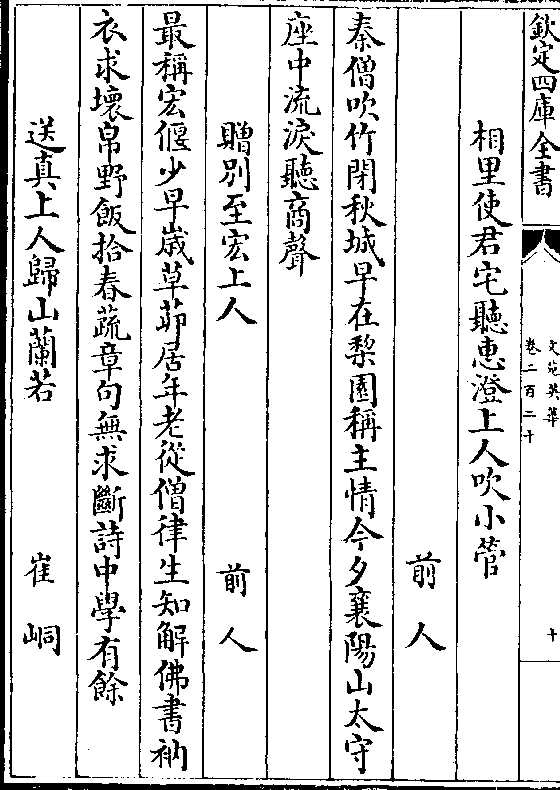 欽定四庫全書
文苑英華
卷二百二十
十
相里使君宅聽惠澄上人吹小管
前人
秦僧吹竹閉秋城早在梨園稱主情今夕襄陽山太守
座中流淚聽商聲
贈別至宏上人
前人
最稱宏偃少早歲草茆居年老從僧律生知解佛書衲
衣求壞帛野飯拾春蔬章句無求斷詩中學有餘
送真上人歸山蘭若
崔峒